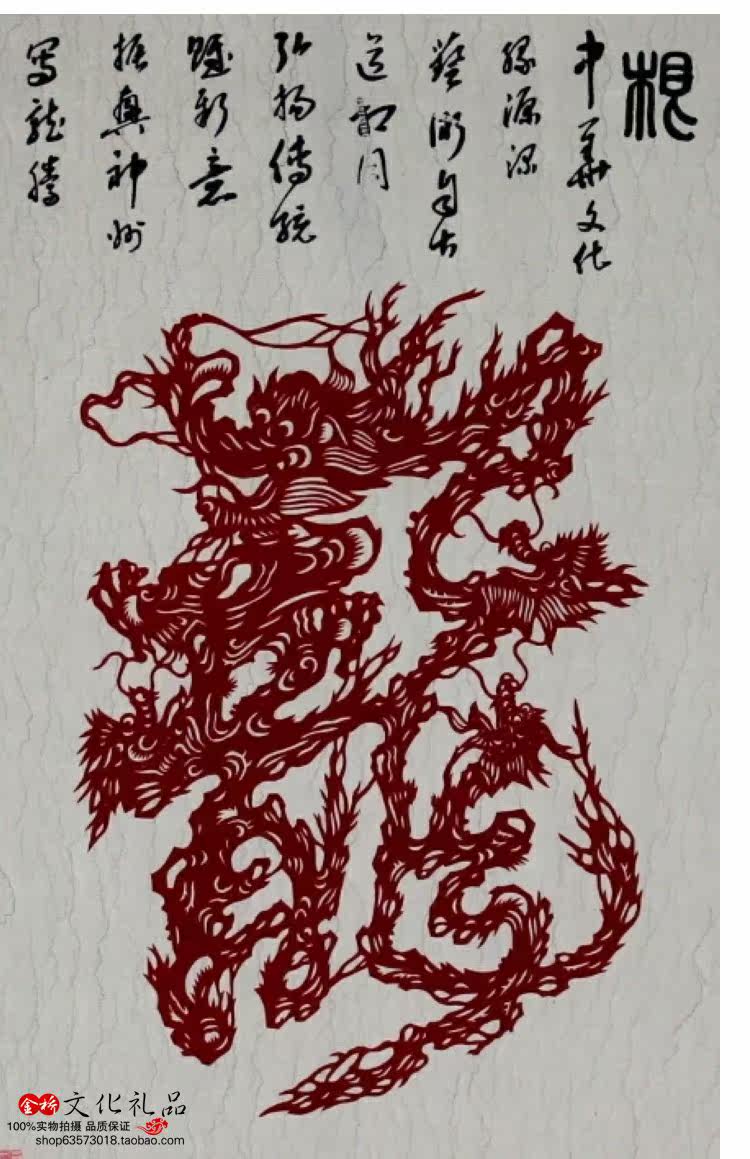 根
中華文化
源深
藝術自古
弘揚傳統
新意
振興神州
寫龍騰
龍
金桥 文化礼品
100%实物拍摄 品质保证
shop63573018.taobao.com